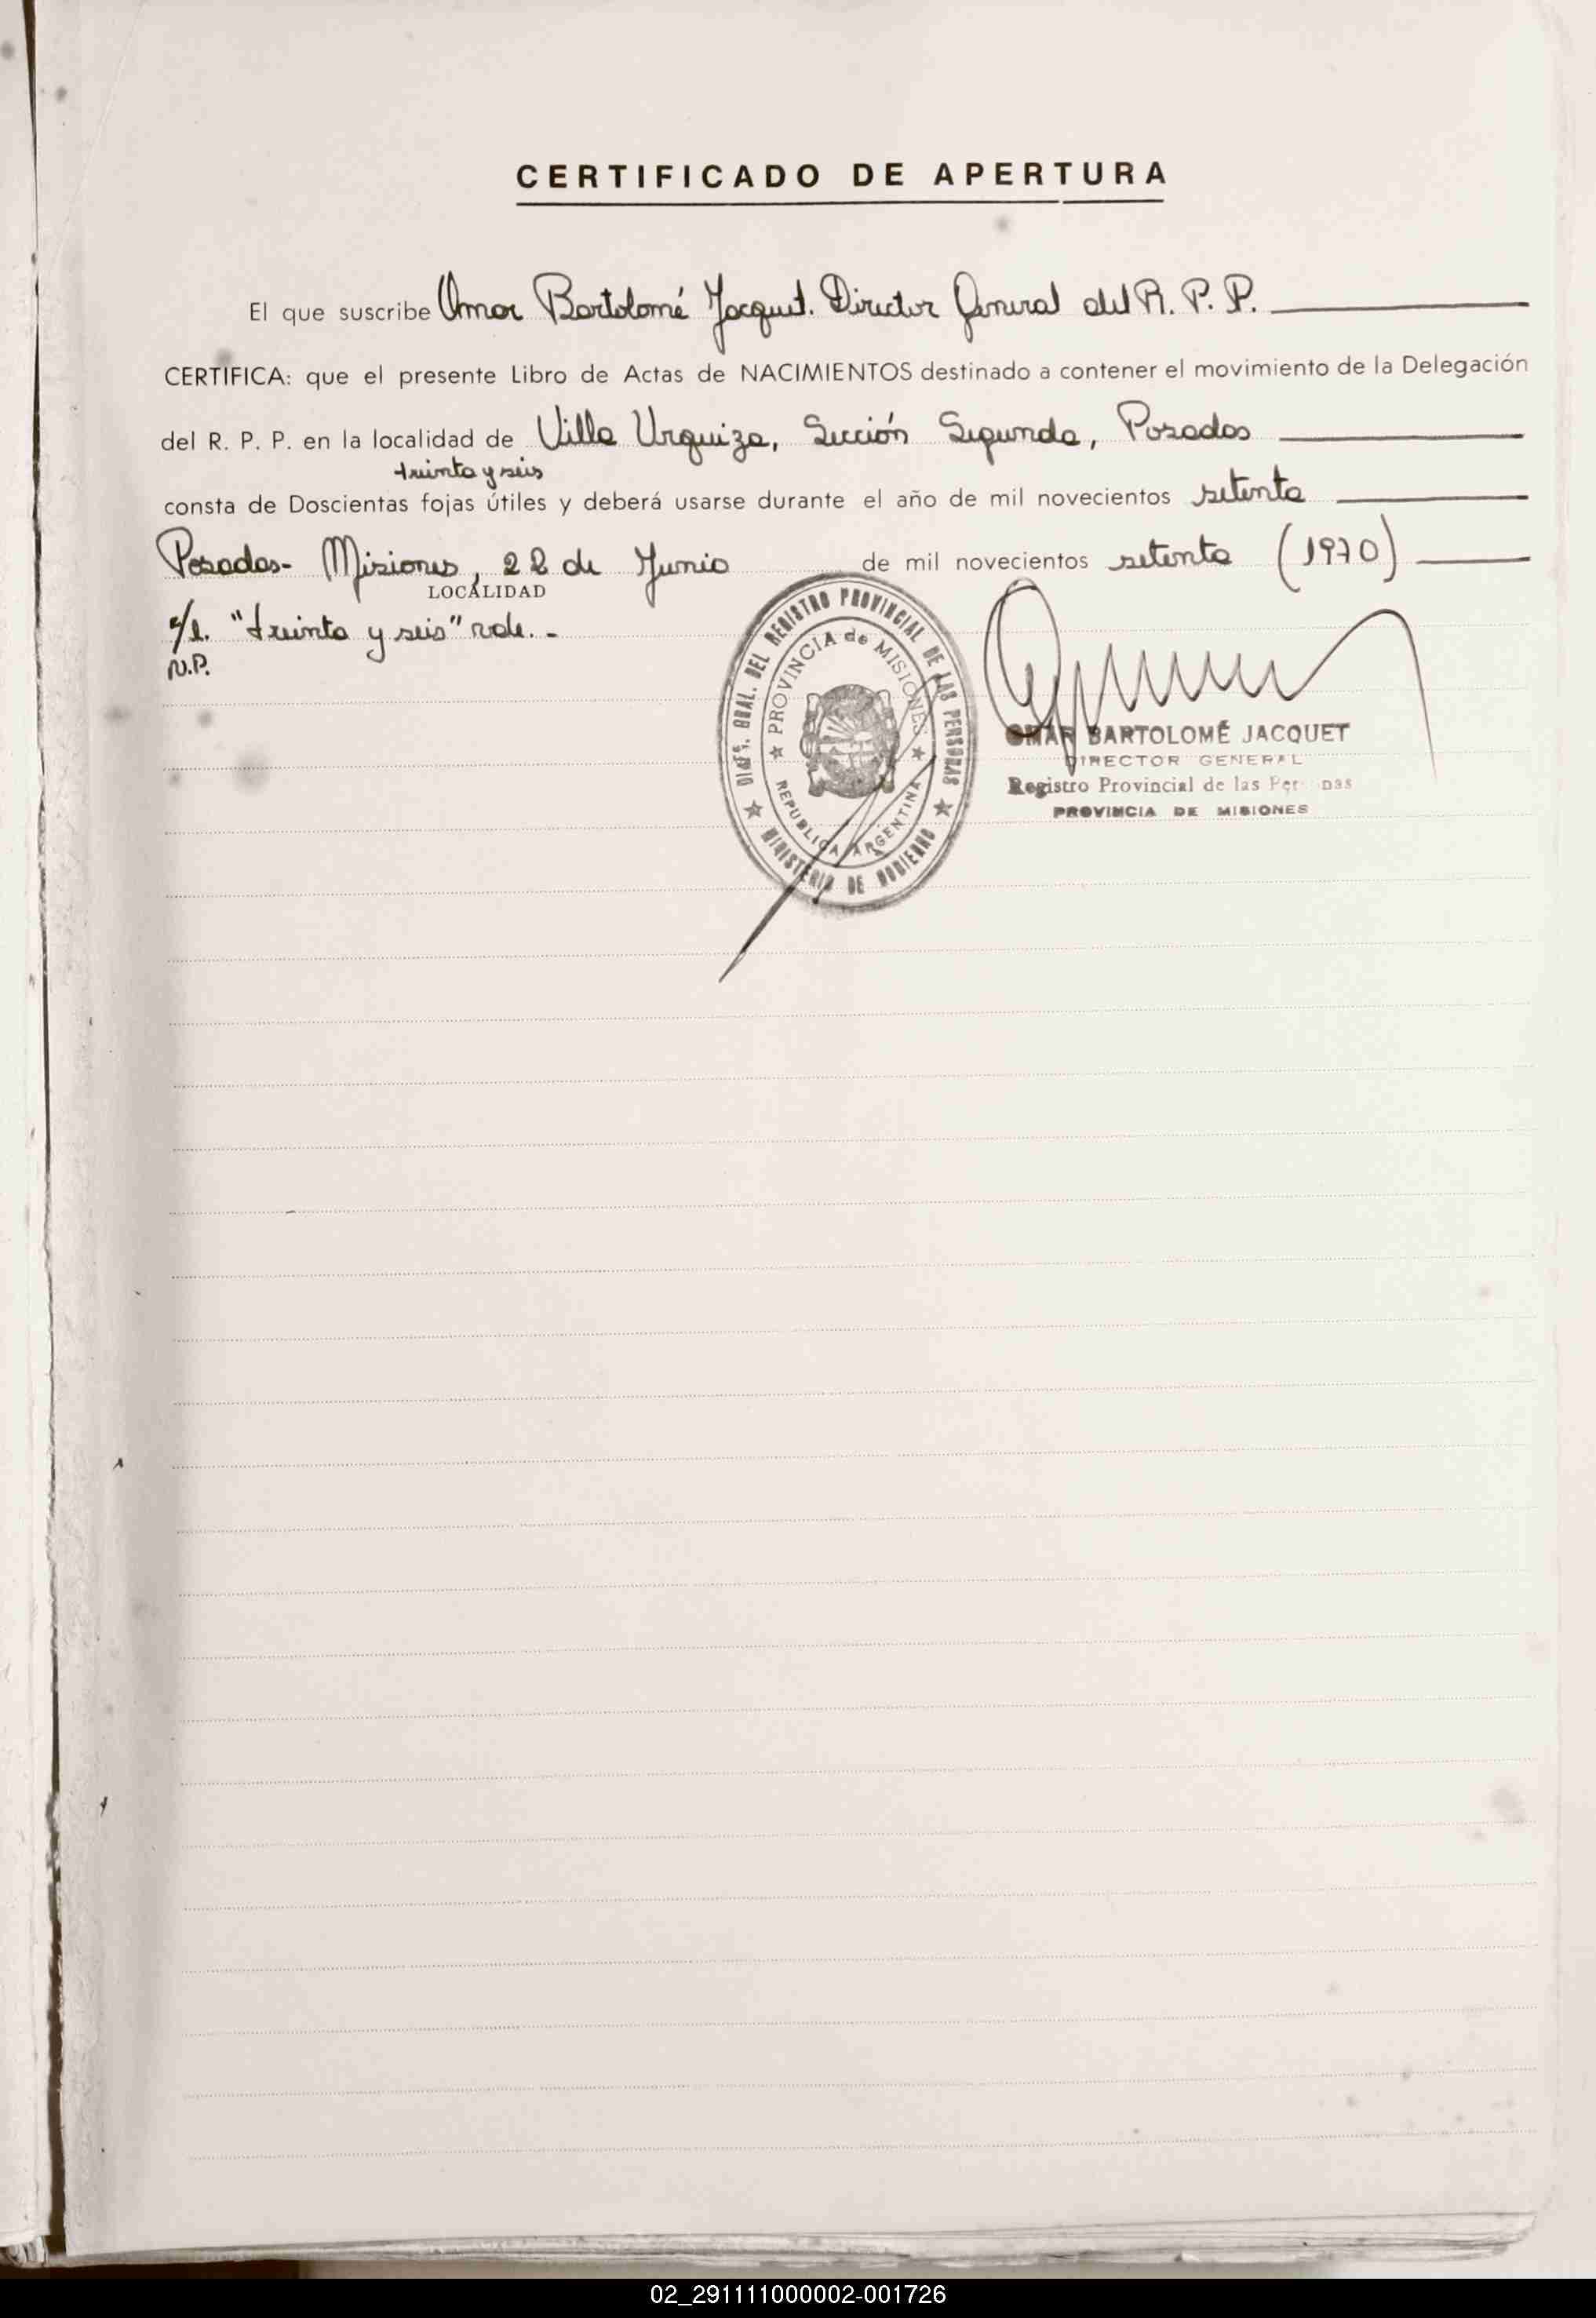 CERTIFICADO DE APERTURA
El que suscribe Omar Bartolomé Jacquet. Director General del R. P. P.
CERTIFICA: que el presente Libro de Actas de NACIMIENTOS destinado a contener el movimiento de la Delegación
del R. P. P. en la localidad de Villa Urquiza, Sección Segunda, Posadas
treinta y seis
consta de Doscientas fojas útiles y deberá usarse durante el año de mil novecientos setenta
Posadas- Misiones, 22 de Junio de mil novecientos setenta (1970)
LOCALIDAD
e/l. "treinta y seis" vale. -
N.P.
GRAL. DEL REGISTRO PROVINCIAL DE LAS PERSONAS
★ MINISTERIO DE GOBIERNO ★
★ PROVINCIA de MISIONES ★
REPUBLICA ARGENTINA
OMAR BARTOLOMÉ JACQUET
DIRECTOR GENERAL
Registro Provincial de las Per nas
PROVINCIA DE MISIONES
02_291111000002-001726